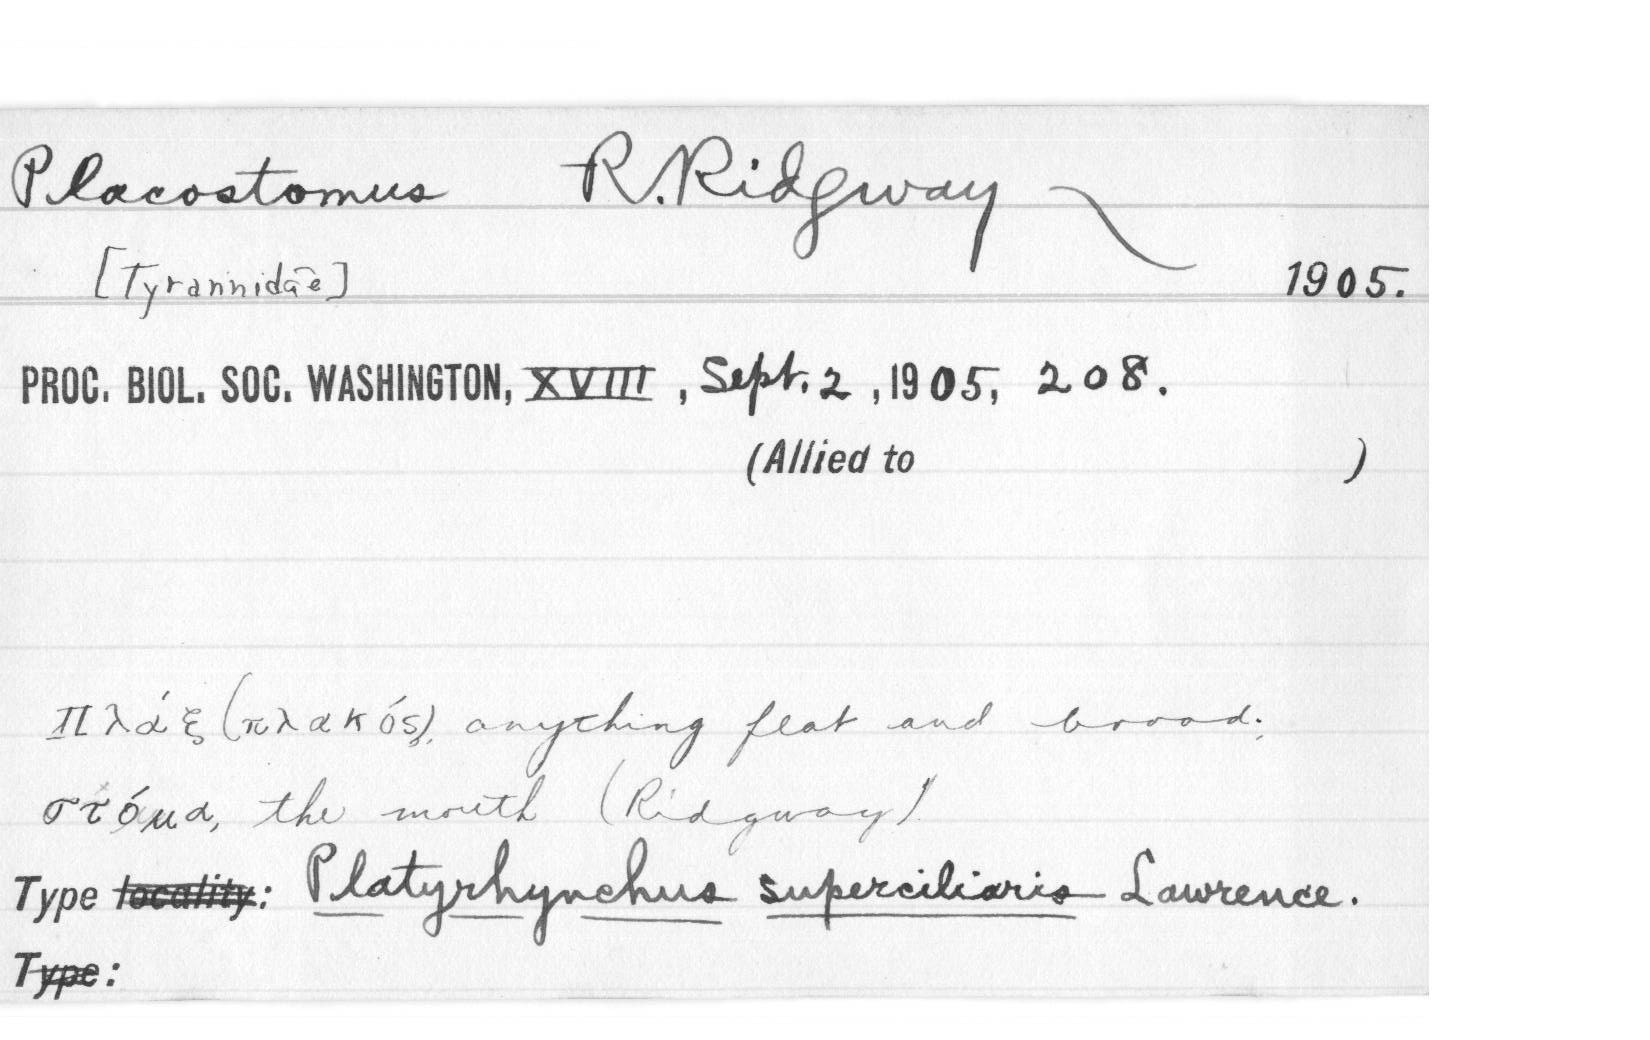 Placostomus R. Ridgway
[Tyrannidae]
1905.
PROC. BIOL. SOC. WASHINGTON, XVIII, Sept. 2, 1905, 208.
(Allied to )
Πλάξ (πλακός), anything flat and broad;
στόμα, the mouth (Ridgway)
Type locality: Platyrhynchus superciliaris Lawrence.
Type: